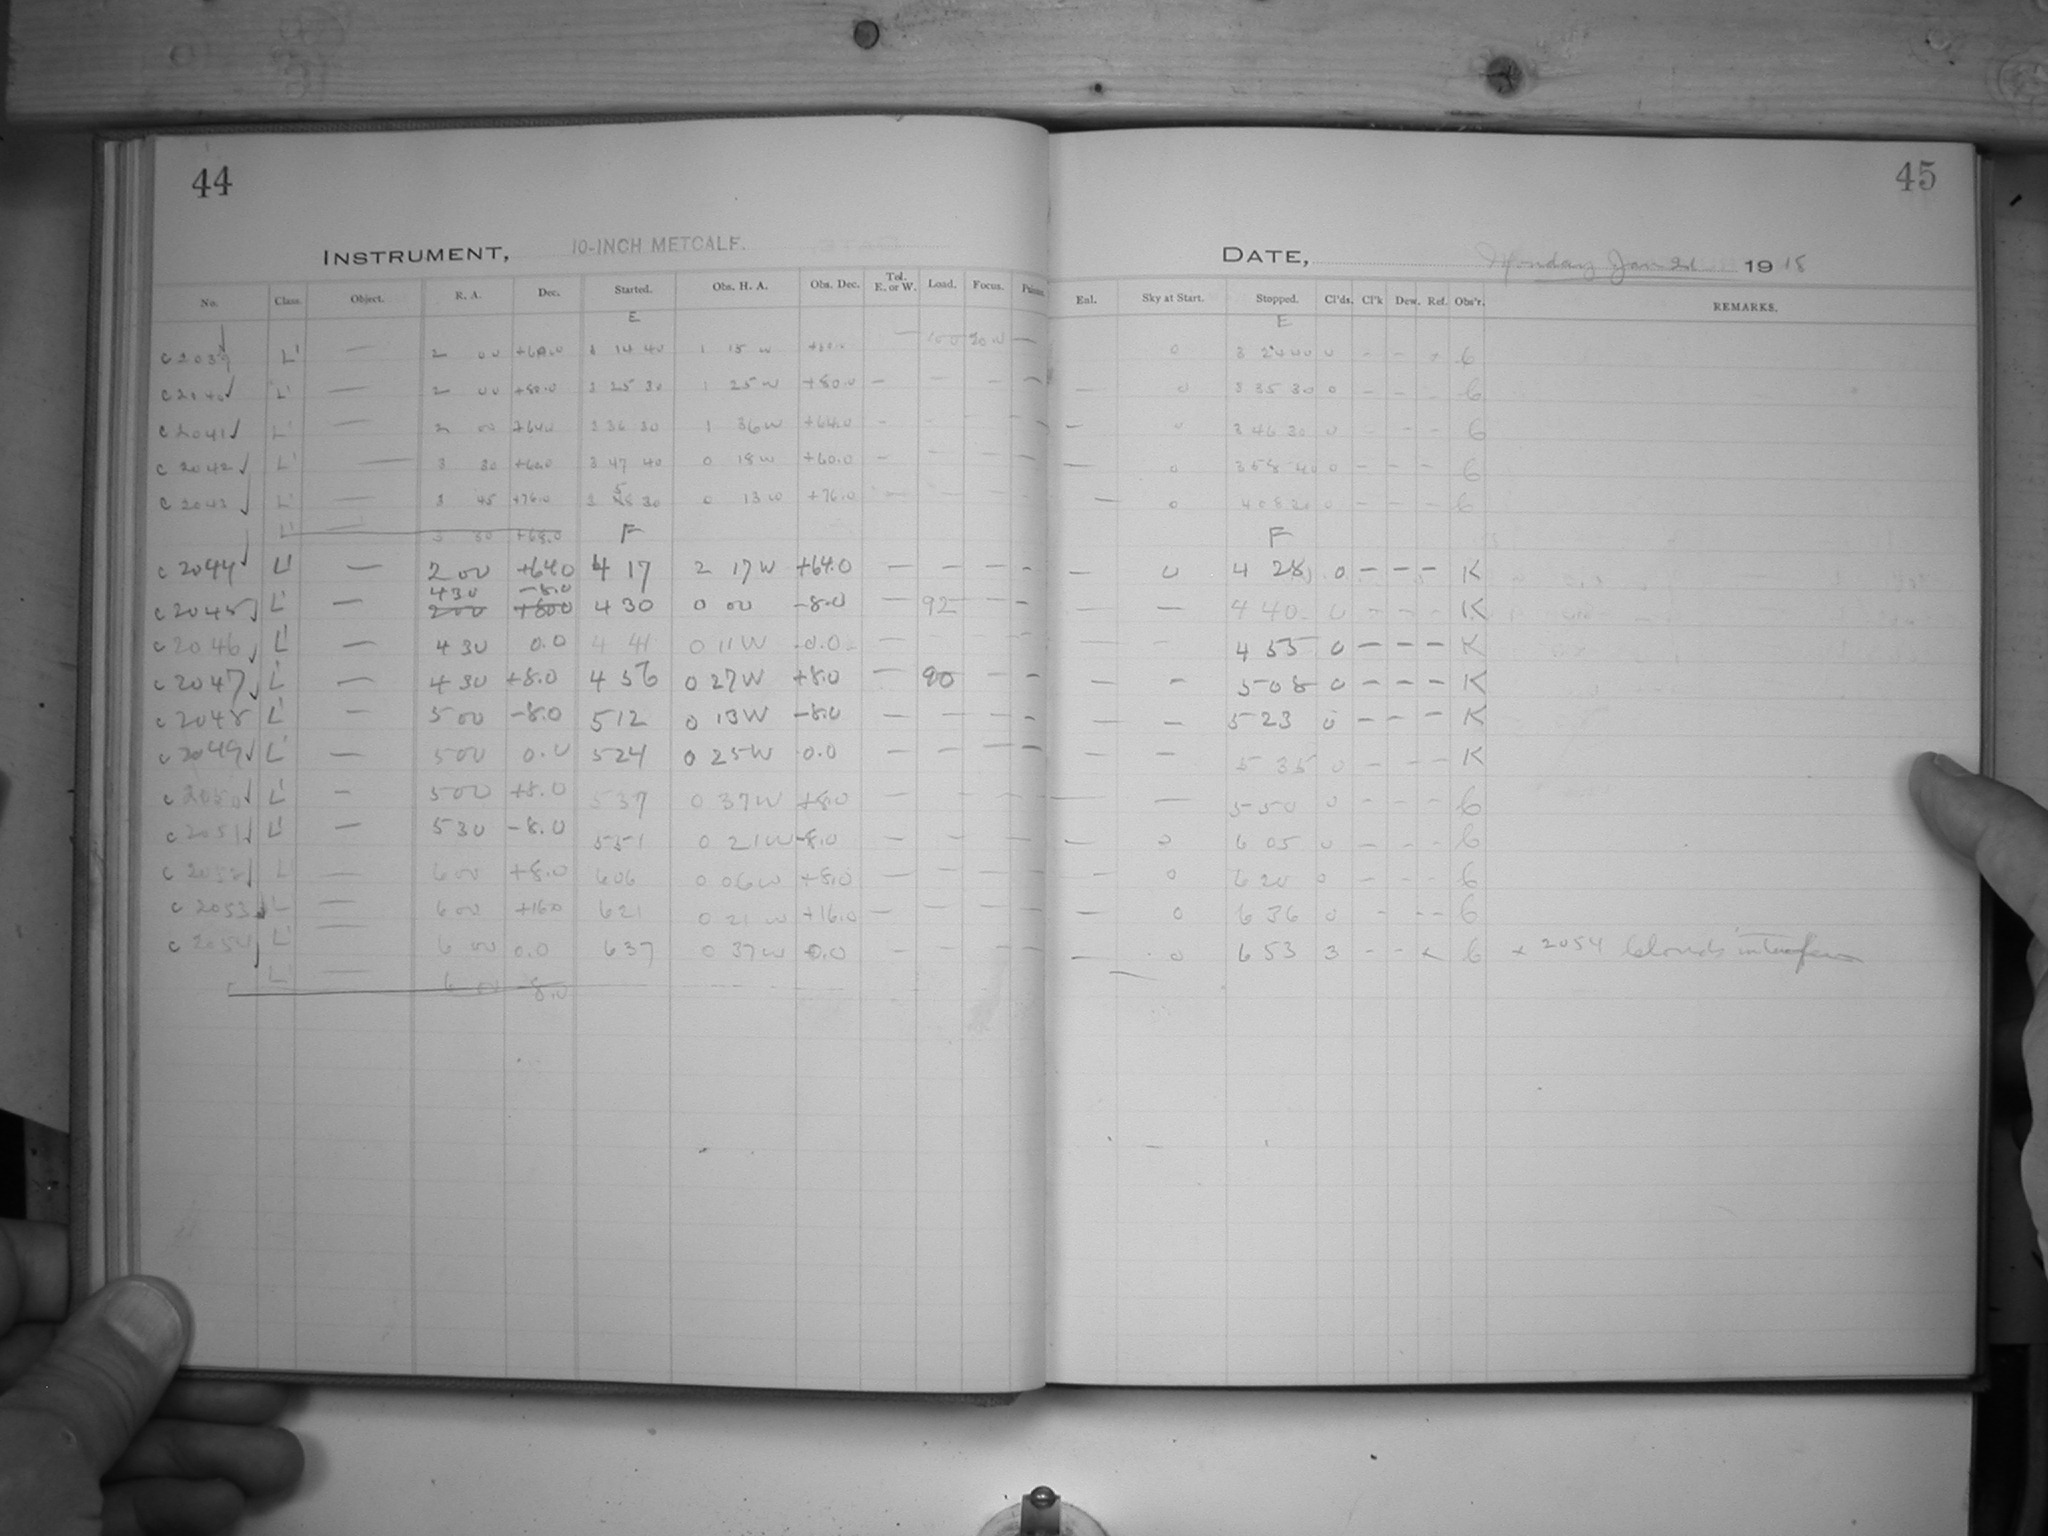 44
45
INSTRUMENT, 10-INCH METCALF.
DATE, Monday Jan 21 1918
No. Class. Object. R. A. Dec. Started. Obs. H. A. Obs. Dec. Tel. E. or W. Load. Focus. Enl. Sky at Start. Stopped. Cl'ds. Cl'k Dew. Ref. Obs'r. REMARKS.
E E
c 2039 L' — 2 00 3 14 40 1 15 W — — 0 3 24 40 0 - - 6
c 2040 L' — 2 00 +80.0 3 25 30 1 25 W +80.0 — — — — — 0 3 35 30 0 - - - 6
c 2041 L' — 2 00 +64.0 3 36 30 1 36 W +64.0 - - - - — 0 3 46 30 0 - - - 6
c 2042 L' — 3 30 +60.0 3 47 40 0 18 W +60.0 - - - - — 0 3 58 40 0 - - - 6
c 2043 L' — 3 45 +76.0 3 58 30 0 13 W +76.0 — - - - — 0 4 08 30 0 - - - 6
L' — 3 30 +68.0
F F
c 2044 L' — 2 00 +64.0 4 17 2 17 W +64.0 — — — - — 0 4 28 0 - - - K
4 30 -8.0
c 2045 L' — 2 00 +80.0 4 30 0 00 -8.0 — 92 - - — — 4 40 0 - - - K
c 2046 L' — 4 30 0.0 4 41 0 11 W 0.0 — — - 4 55 0 - - - K
c 2047 L' — 4 30 +8.0 4 56 0 27 W +8.0 — 90 - - — - 5 08 0 - - - K
c 2048 L' — 5 00 -8.0 5 12 0 13 W -8.0 — — — - — — 5 23 0 - - - K
c 2049 L' — 5 00 0.0 5 24 0 25 W 0.0 — — — — — — 5 35 0 - - - K
c 2050 L' - 5 00 +8.0 5 37 0 37 W +8.0 — - - - — — 5 50 0 - - - 6
c 2051 L' — 5 30 -8.0 5 51 0 21 W -8.0 — - - - — 0 6 05 0 - - - 6
c 2052 L' — 6 00 +8.0 6 06 0 06 W +8.0 — — — — — 0 6 20 0 - - - 6
c 2053 L' — 6 00 +16.0 6 21 0 21 W +16.0 — — — — — 0 6 36 0 - - - 6
c 2054 L' — 6 00 0.0 6 37 0 37 W 0.0 - - - - — 0 6 53 3 - - x 6 x 2054 Clouds
L' — 6 00 -8.0